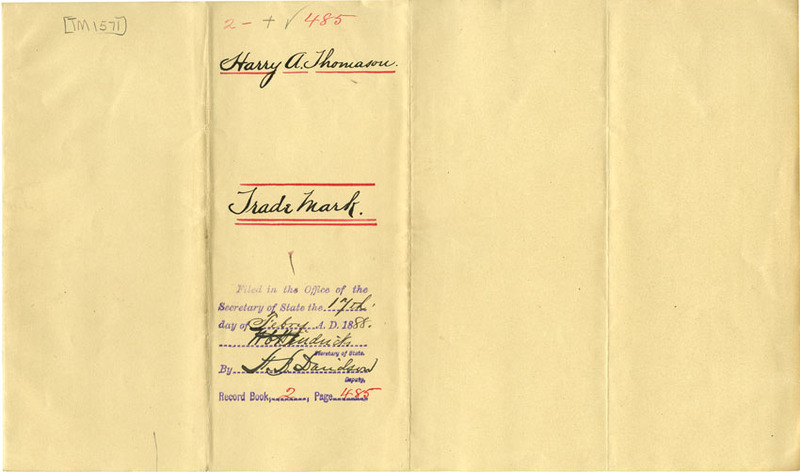 [TM1571]
2 - + √ 485
Harry A. Thomason.
Trade Mark.
Filed in the Office of the
Secretary of State the 17th
day of Febry A. D. 1888.
W. C. Hendricks
Secretary of State.
By Davidson
Deputy.
Record Book, 2, Page 485